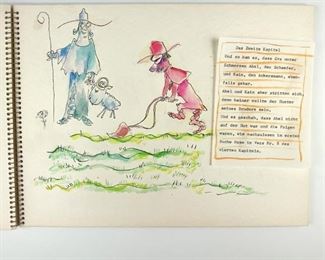 Das Zweite Kapitel
Und so kam es, dass Eva unter
Schmerzen Abel, den Schaefer,
und Kain, den Ackersmann, eben-
falls gebar.
Abel und Kain aber stritten sich,
denn keiner wollte der Hueter
seines Bruders sein.
Und es geschah, dass Abel nicht
auf der Hut war und die Folgen
waren, wie nachzulesen im ersten
Buche Mose in Vers Nr. 8 des
vierten Kapitels.